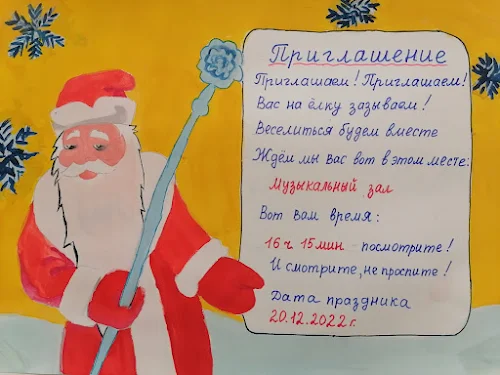 Приглашение
Приглашаем! Приглашаем!
Вас на ёлку зазываем!
Веселиться будем вместе
Ждём мы Вас вот в этом месте:
Музыкальный зал
Вот вам время:
16 ч 15 мин - посмотрите!
И смотрите, не проспите!
Дата праздника
20.12.2022 г.